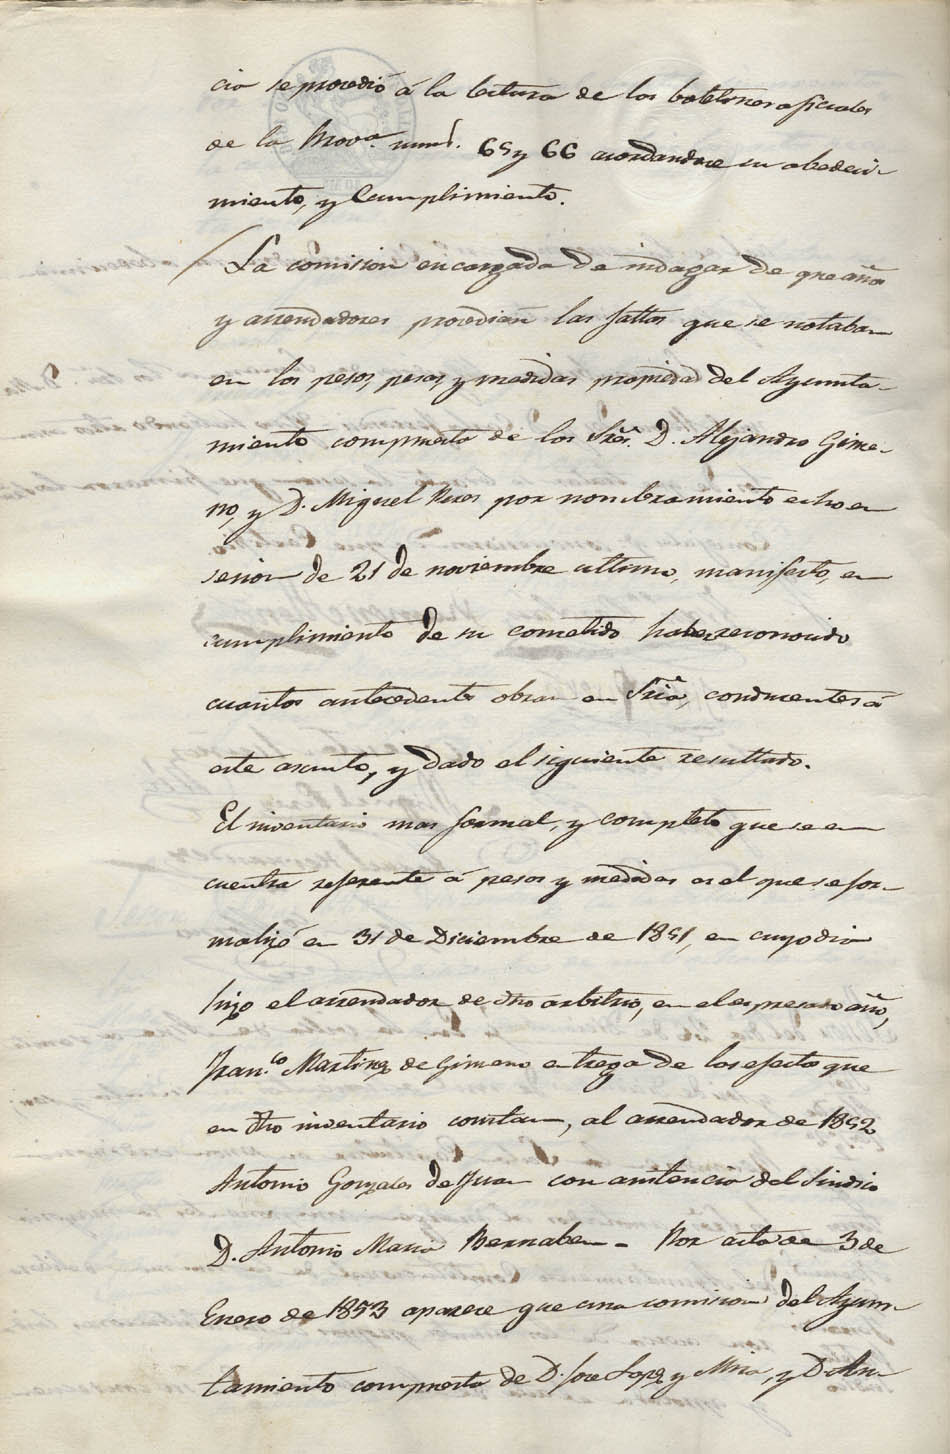 cia se procedió á la lectura de los boletines oficiales
de la Prova. nums. 65 y 66 acordandose su obedeci-
miento, y Cumplimiento.
La comision encargada de indagar de que años
y arrendadores procedian las faltas que se notaban
en los pesos, pesas, y medidas propiedad del Ayunta-
miento compuesta de los Sres. D. Alejandro Gime-
no, y D. Miguel Rico por nombramiento echo en
sesion de 21 de noviembre ultimo, manifesto, en
cumplimiento de su cometido haber reconocido
cuantos antecedentes obran en Sria, conducentes á
este asunto, y dado el siguiente resultado.
El inventario mas formal, y completo que se en
cuentra referente á pesos y medidas es el que se for-
malizó en 31 de Diciembre de 1851, en cuyo dia
hizo el arrendador de dho arbitrio, en el espresado año,
Franco. Martinez de Gimeno entrega de los efectos que
en dho inventario constan, al arrendador de 1852
Antonio Gonzales de Juan con asistencia del Sindico
D. Antonio Maria Bernabeu - Por acta de 3 de
Enero de 1853 aparece que una comision del Ayun-
tamiento compuesta de D. Jose Lopez y Mira, y D. An-